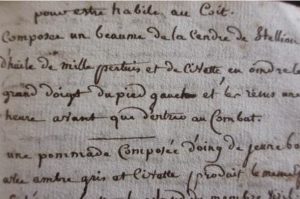 pour estre habile au Coit.
Composer un beaume de la Cendre de Stellion
d'huile de mille pertuis et de Civette en oindre le
grand doigt du pied gauche et les reins une
heure avant que d'entrer au Combat.
une pommade Composée d'oing de jeune bo
avec ambre gris et Civette produit le mesme